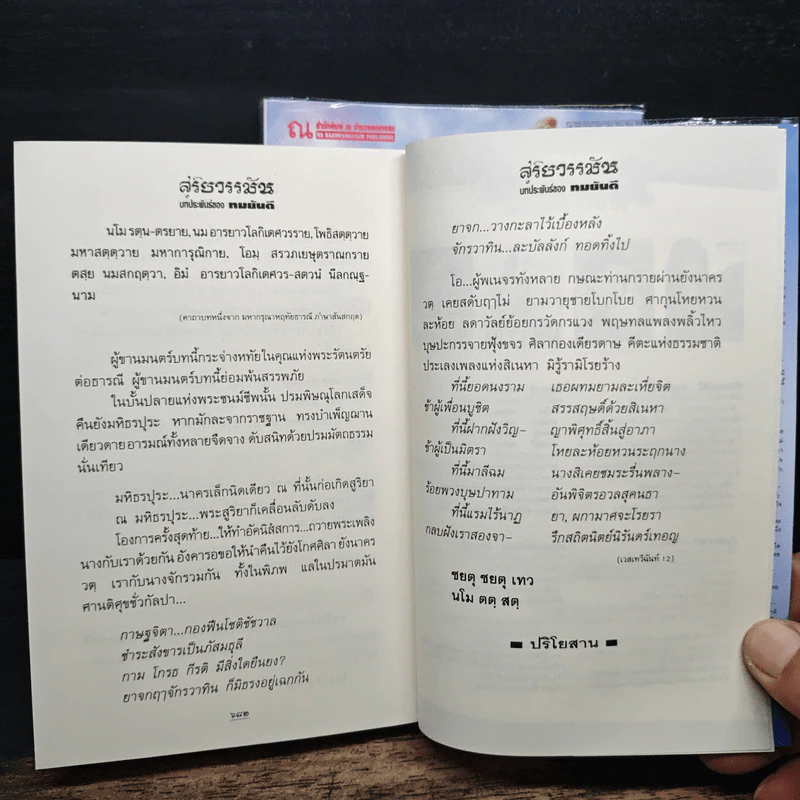 ณ
สำนักพิมพ์ ณ บ้านวรรณกรรม
NA BAANWANNAGUM PUBLISHING
สุริยวรรมัน
บทประพันธ์ของ ทมยันตี
นโม รตฺน-ตรยาย, นม อารยาวโลกิเตศวราย, โพธิสตฺตฺวาย
มหาสตฺตฺวาย มหาการุณิกาย, โอมฺ สรวภเยษุตราณกราย
ตสฺย นมสกฤตฺวา, อิมํ อารยาวโลกิเตศวร-สตวนํ นีลกณฺฐ-
นาม
(คาถาบทหนึ่งจาก มหากรุณาหฤทัยธารณี ภาษาสันสกฤต)
ผู้ขานมนตร์บทนี้กระจ่างหทัยในคุณแห่งพระรัตนตรัย
ต่อธารณี ผู้ขานมนตร์บทนี้ย่อมพ้นสรรพภัย
ในบั้นปลายแห่งพระชนม์ชีพนั้น ปรมพิษณุโลกเสด็จ
คืนยังมหิธรปุระ หากมักละจากราชฐาน ทรงบำเพ็ญฌาน
เดียวดาย อารมณ์ทั้งหลายจืดจาง ดับสนิทด้วยปรมมัตถธรรม
นั่นเทียว
มหิธรปุระ...นาครเล็กนิดเดียว ณ ที่นั้นก่อเกิดสูริยา
ณ มหิธรปุระ...พระสูริยาก็เคลื่อนลับดับลง
โองการครั้งสุดท้าย...ให้ทำอัคนิสังสการ...ถวายพระเพลิง
นางกับเราด้วยกัน อังคารอขอให้นำคืนไว้ยังโกศศิลา ยังนาคร
วตฺ เรากับนางจักรวมกัน ทั้งในพิภพ แลในปรมาตมัน
ศานติสุขชั่วกัลปา...
กาษฐจิตา...กองฟืนโชติชัชวาล
ชำระสังขารเป็นภัสมธุลี
กาม โกรธ กีรติ มีสิ่งใดยืนยง?
ยาจกฤๅจักรวาทิน ก็มิธรงอยู่เฉกกัน
๖๘๒
สุริยวรรมัน
บทประพันธ์ของ ทมยันตี
ยาจก...วางกะลาไว้เบื้องหลัง
จักรวาทิน...ละบัลลังก์ ทอดทิ้งไป
โอ...ผู้พเนจรทั้งหลาย กษณะท่านกรายผ่านยังนาคร
วตฺ เคยสดับฤๅไม่ ยามวายุชายโบกโบย ศากุนโหยหวน
ละห้อย ลดาวัลย์ย้อยกรวัดกรแวง พฤษทลแพลงพลิ้วไหว
บุษปะกรรจายฟุ้งขจร ศิลากองเดียรดาษ คีตะแห่งธรรมชาติ
ประเลงเพลงแห่งสิเนหา มิรู้รามิโรยร้าง
ที่นี้ยอดนงราม เธอผทมยามละเหี่ยจิต
ข้าผู้เพื่อนบูชิต สรรสฤษดิ์ด้วยสิเนหา
ที่นี้ฝากฝังวิญ– ญาพิศุทธิ์สิ้นสู่อาภา
ข้าผู้เป็นมิตรา โหยละห้อยหวนระฤกนาง
ที่นี้มาลีฉม นางสิเคยชมระรื่นพลาง–
ร้อยพวงบุษปาทาม อันพิจิตรอวลสุคนธา
ที่นี้แรมไร้นาฏ ยา, ผกามาศจะโรยรา
กลบฝังเราสองจา– รึกสถิตนิตย์นิรันดร์เทอญ
(เวสเทวีฉันท์ 12)
ชยตุ ชยตุ เทว
นโม ตตฺ สตฺ
ปริโยสาน